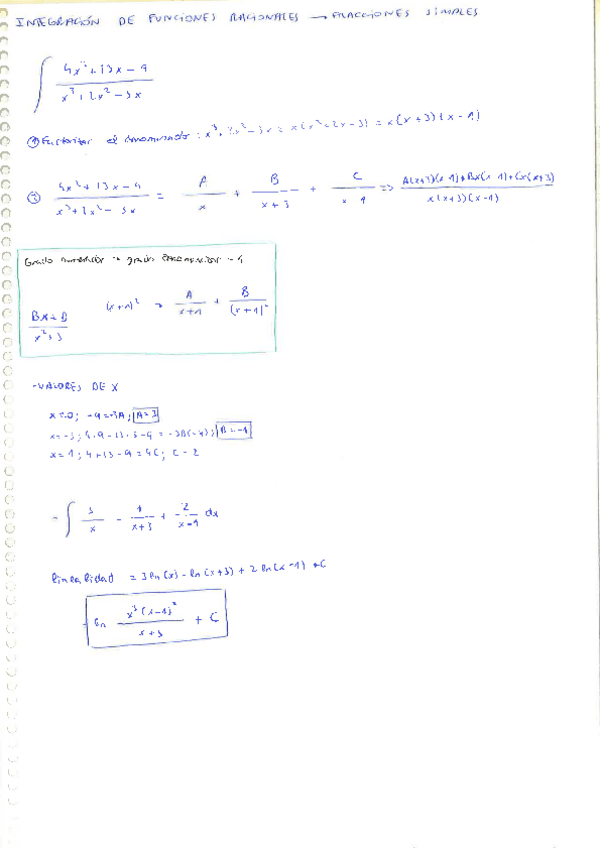 INTEGRACIÓN DE FUNCIONES RACIONALES → FRACCIONES SIMPLES
∫ (4x² + 13x - 9) / (x³ + 2x² - 3x)
① Factorizar el denominador: x³ + 2x² - 3x = x(x² + 2x - 3) = x(x + 3)(x - 1)
② (4x² + 13x - 9) / (x³ + 2x² - 3x) = A / x + B / (x + 3) + C / (x - 1) => (A(x+3)(x-1) + Bx(x-1) + Cx(x+3)) / (x(x+3)(x-1))
Grado numerador → grado denominador - 1
(x + 1)² → A / (x + 1) + B / (x + 1)²
/ (x² + 3)
- VALORES DE X
x = 0; -9 = -3A; A = 3
x = -3; 4·9 - 13·3 - 9 = -3B(-4); B = -1
x = 1; 4 + 13 - 9 = 4C; C = 2
= ∫ 3 / x - 1 / (x + 3) + 2 / (x - 1) dx
linealidad = 3 ln(x) - ln(x + 3) + 2 ln(x - 1) + C
ln (x³(x - 1)²) / (x + 3) + C